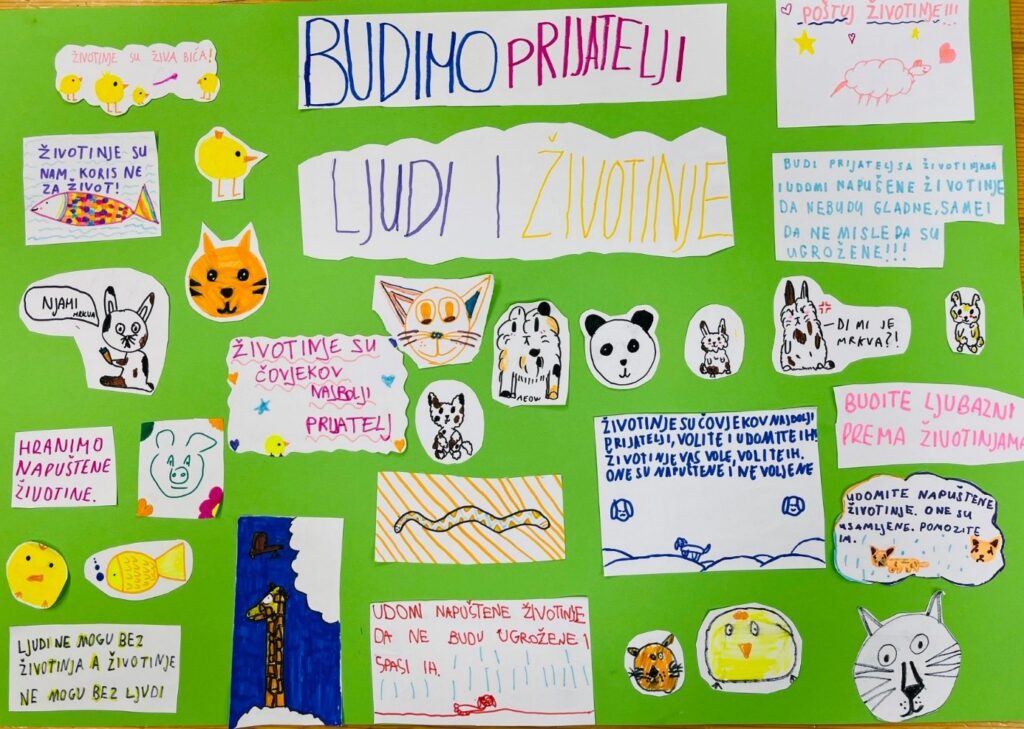 BUDIMO PRIJATELJI
LJUDI I ŽIVOTINJE
ŽIVOTINJE SU ŽIVA BIĆA!
POŠTUJ ŽIVOTINJE!!!
ŽIVOTINJE SU
NAM KORIS NE
ZA ŽIVOT!
BUDI PRIJATELJ SA ŽIVOTINJAMA
I UDOMI NAPUŠENE ŽIVOTINJE
DA NEBUDU GLADNE, SAME I
DA NE MISLE DA SU
UGROŽENE!!!
NJAMI
MRKVA
ŽIVOTINJE SU
ČOVJEKOV
NAJBOLJI
PRIJATELJ
MEOW
-DI MI JE
MRKVA?!
BUDITE LJUBAZNI
PREMA ŽIVOTINJAMA
HRANIMO
NAPUŠTENE
ŽIVOTINE.
ŽIVOTINJE SU ČOVJEKOV NAJBOLJI
PRIJATELJI, VOLITE I UDOMITE IH!
ŽIVOTINJE VAS VOLE, VOLITE IH.
ONE SU NAPUŠTENE I NE VOLJENE
UDOMITE NAPUŠTENE
ŽIVOTINJE. ONE SU
USAMLJENE. POMOZITE
IM.
LJUDI NE MOGU BEZ
ŽIVOTINJA A ŽIVOTINJE
NE MOGU BEZ LJUDI
UDOMI NAPUŠTENE ŽIVOTINJE
DA NE BUDU UGROŽENE I
SPASI IH.